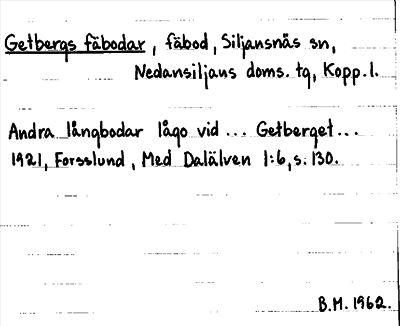 Getbergs fäbodar, fäbod, Siljansnäs sn,
Nedansiljans doms. tg, Kopp. l.
Andra långbodar lågo vid ... Getberget...
1921, Forsslund, Med Dalälven 1:6, s. 130.
B.M. 1962.